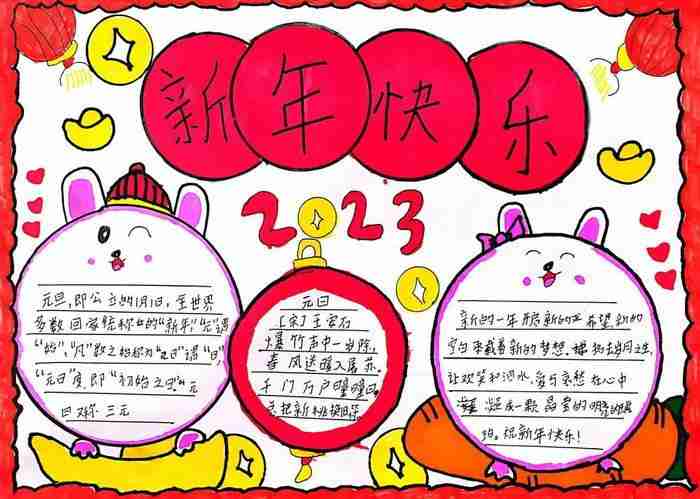 新年快乐
2023
元旦,即公立的1月1日,全世界
多数国家统称的“新年”“元”谓
“始”,“凡”数之始称为“元”“旦”谓“日”,
“元日”度,即“初始之日”“元
日又称 三元
元日
[宋]王安石
爆竹声中一岁除,
春风送暖入屠苏。
千门万户曈曈日,
总把新桃换旧符
新的一年开启新的 希望,新的
空白承载着新的梦想,拂去岁月之尘,
让欢笑和泪水,爱与哀愁在心中
凝成一颗晶莹的明
珀。祝新年快乐!